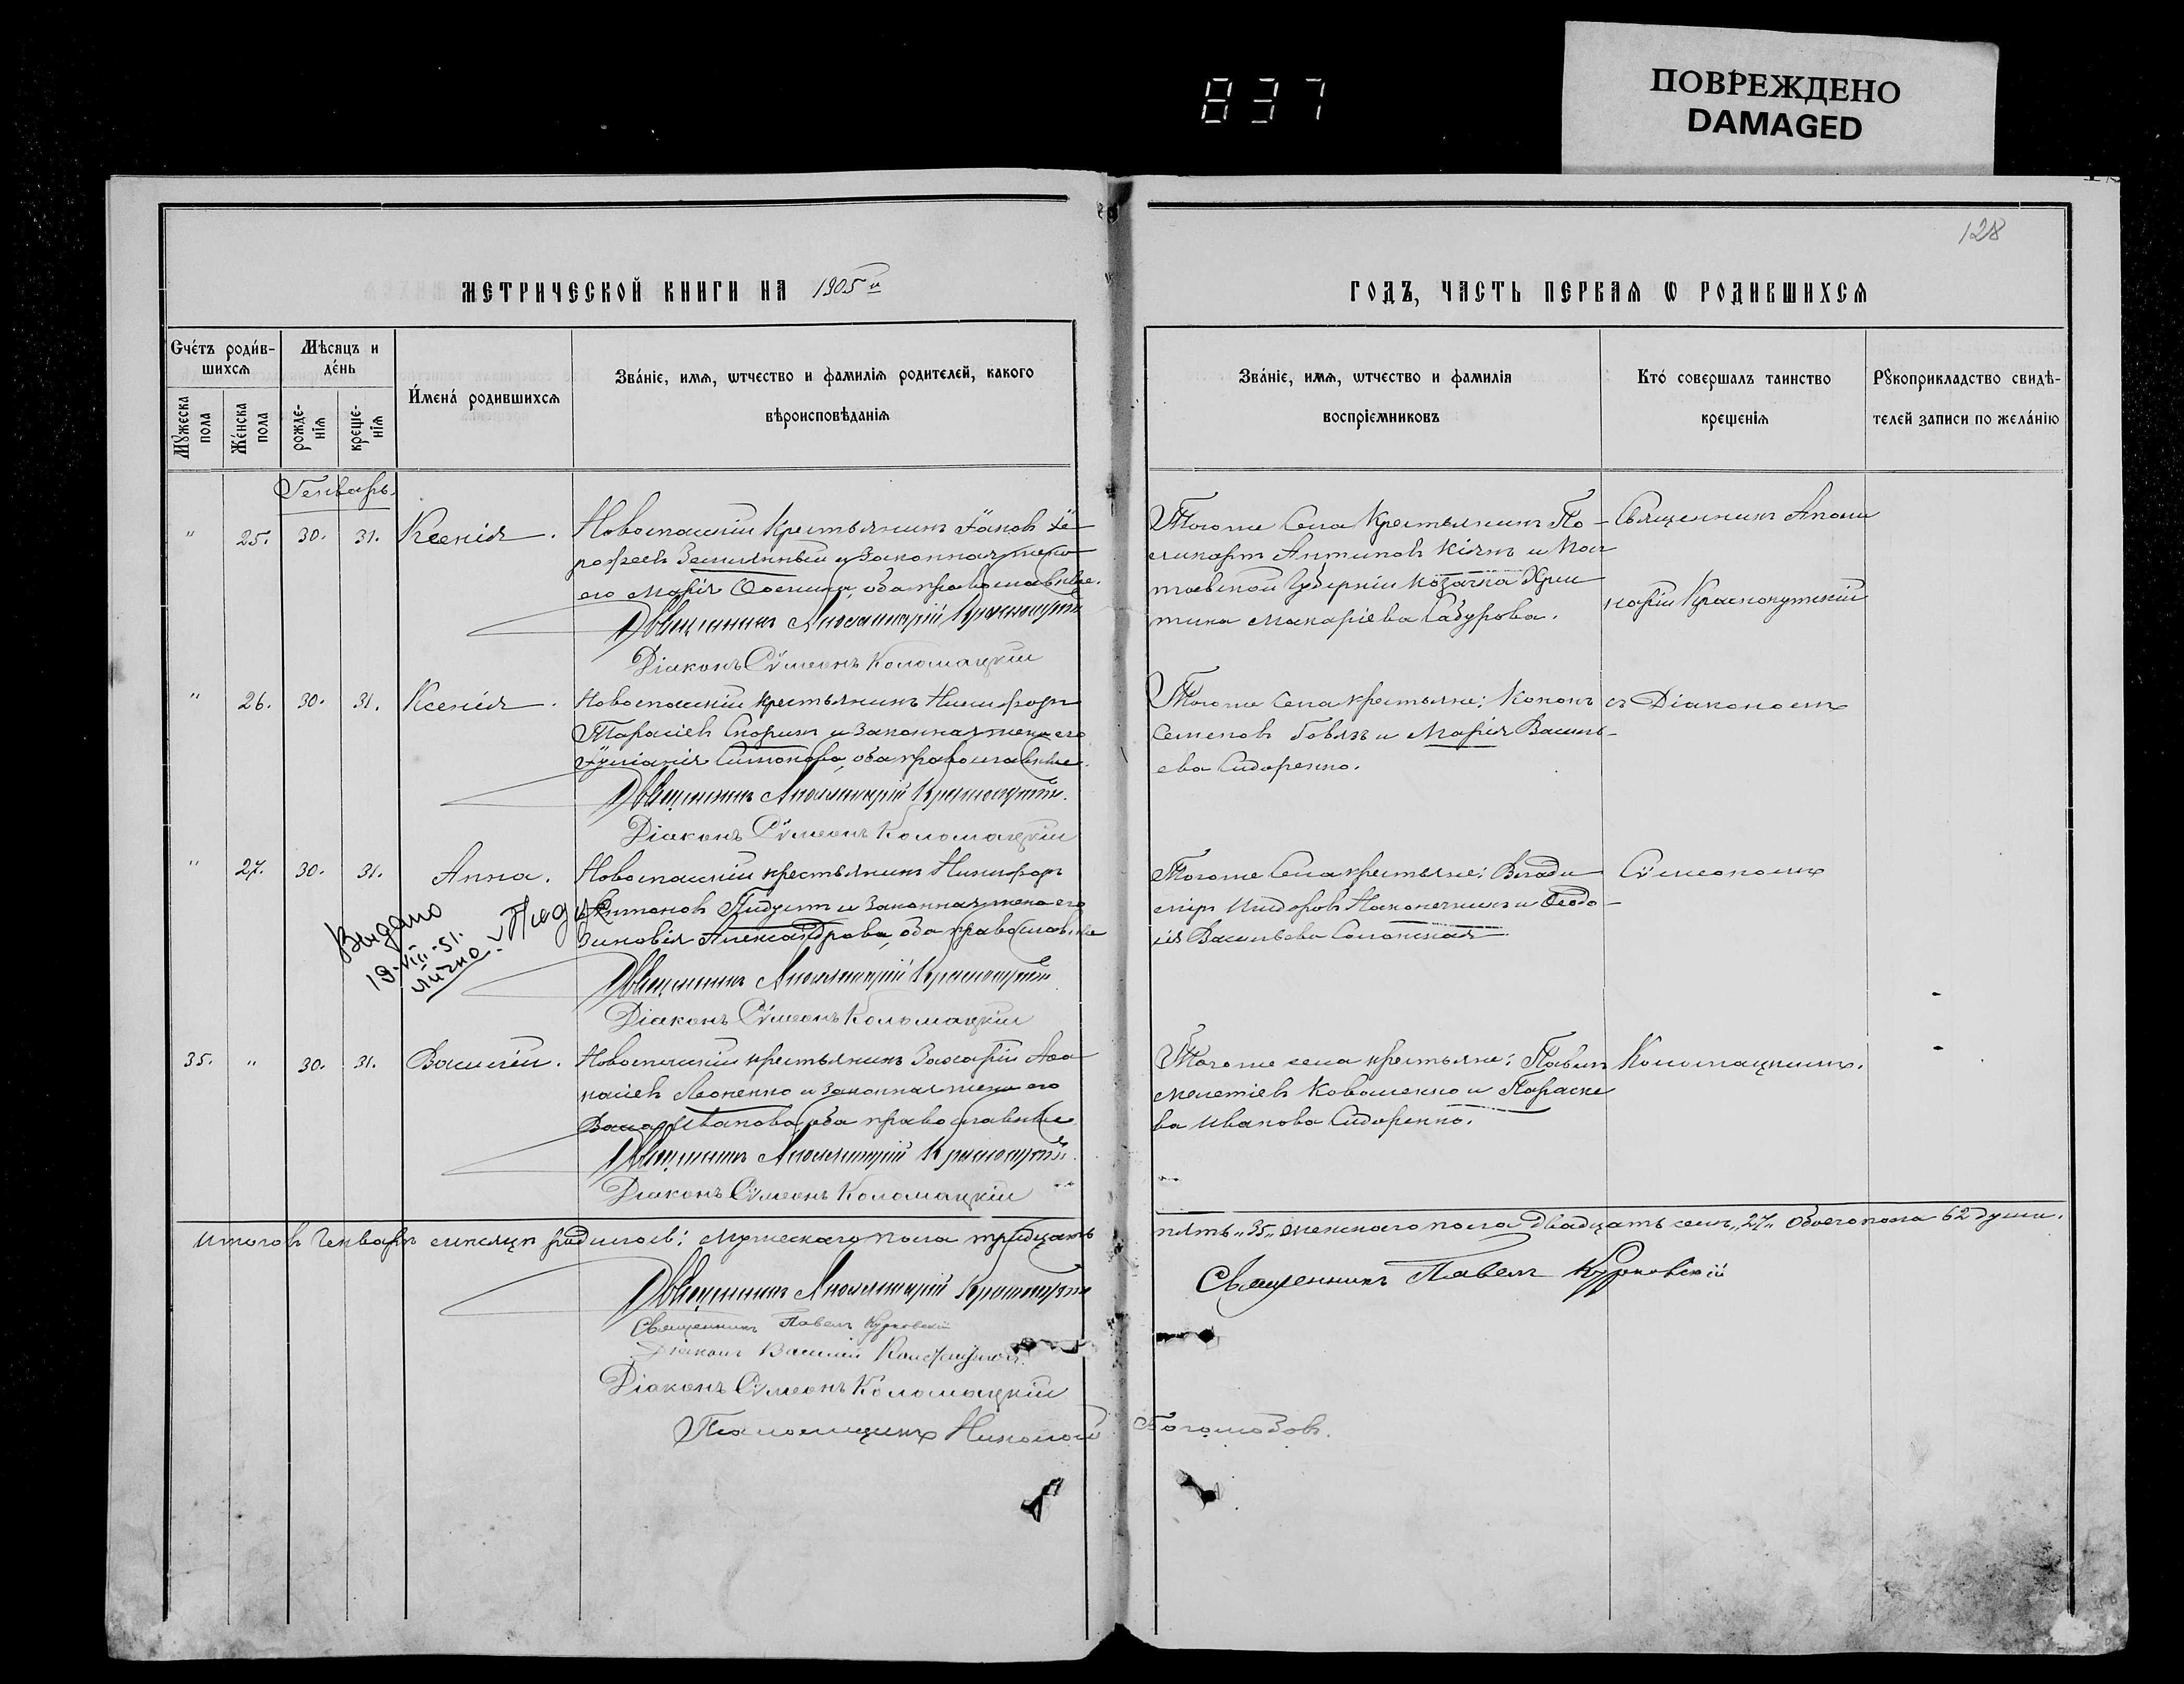 837
ПОВРЕЖДЕНО
DAMAGED
128
МЕТРИЧЕСКОЙ КНИГИ НА 1905й
ГОДЪ, ЧАСТЬ ПЕРВАѦ Ѡ РОДИВШИХСѦ
Счéтъ роди́в-
шихсѧ
Мѣсяцъ и
дéнь
Мꙋжеска пола
Жéнска пола
рожде-
нія
креще-
нія
И́мена́ родившихсѧ
Зва́нїе, имѧ, ѡтчество и фамилїѧ родителей, какого
вѣроисповѣданїѧ
Зва́нїе, имѧ, ѡтчество и фамилїѧ
воспрїемниковъ
Кто́ совершалъ таинство
крещенїѧ
Рꙋкоприкладство свидѣ-
телей записи по жела́нїю
Генварь
" 25. 30. 31. Ксенія.
Новоспасскій крестьянинъ Іаковъ Іе-
рофеевъ и законная жена
его Марія оба православные.
Священникъ Аполлинарій Краснокутскій
Діаконъ Сѵмеонъ Коломацкій
Того же села крестьянинъ По-
ликарпъ Антиповъ Кіянъ и Пол-
тавской губерніи козачка Хрис
тина Макаріева
Священникъ Аполли
нарій Краснокутскій
" 26. 30. 31. Ксенія.
Новоспасскій крестьянинъ Никифоръ
Тарасіевъ Скорикъ и законная жена его
Іуліанія Симонова, оба православные.
Священникъ Аполлинарій Краснокутскій.
Діаконъ Сѵмеонъ Коломацкій
Того же села крестьяне: Кононъ
Семеновъ Говязъ и Марія Василь-
ева Сидоренко.
съ Діакономъ
" 27. 30. 31. Анна.
Новоспасскій крестьянинъ Никифоръ
Антоновъ и законная жена его
Зиновія Александрова, оба православные
Священникъ Аполлинарій Краснокутскій
Діаконъ Сѵмеонъ Коломацкій
Выдано
19-VIII-51.
лично.
Того же села крестьяне: Влади
міръ Исидоровъ Наконечный и Ѳеодо-
сія Васильева
Сѵмеономъ
35. " 30. 31. Василій.
Новоспасскій крестьянинъ Захарій Аѳа
насіевъ Леоненко и законная жена его
Васса Иванова оба православные
Священникъ Аполлинарій Краснокутскій
Діаконъ Сѵмеонъ Коломацкій
Того же села крестьяне: Павелъ
Мелетіевъ Коваленко и Параске
ва Иванова Сидоренко.
Коломацкимъ.
Итого въ Генварѣ мѣсяцѣ родилось: мужескаго пола тридцать
пять „35„ женскаго пола двадцать семь „27„ обоего пола 62 души.
Священникъ Аполлинарій Краснокутскій
Священникъ Павелъ Курковскій
Священникъ Павелъ Курковскій
Діаконъ Василій
Діаконъ Сѵмеонъ Коломацкій
Псаломщикъ Николай Боголюбовъ.